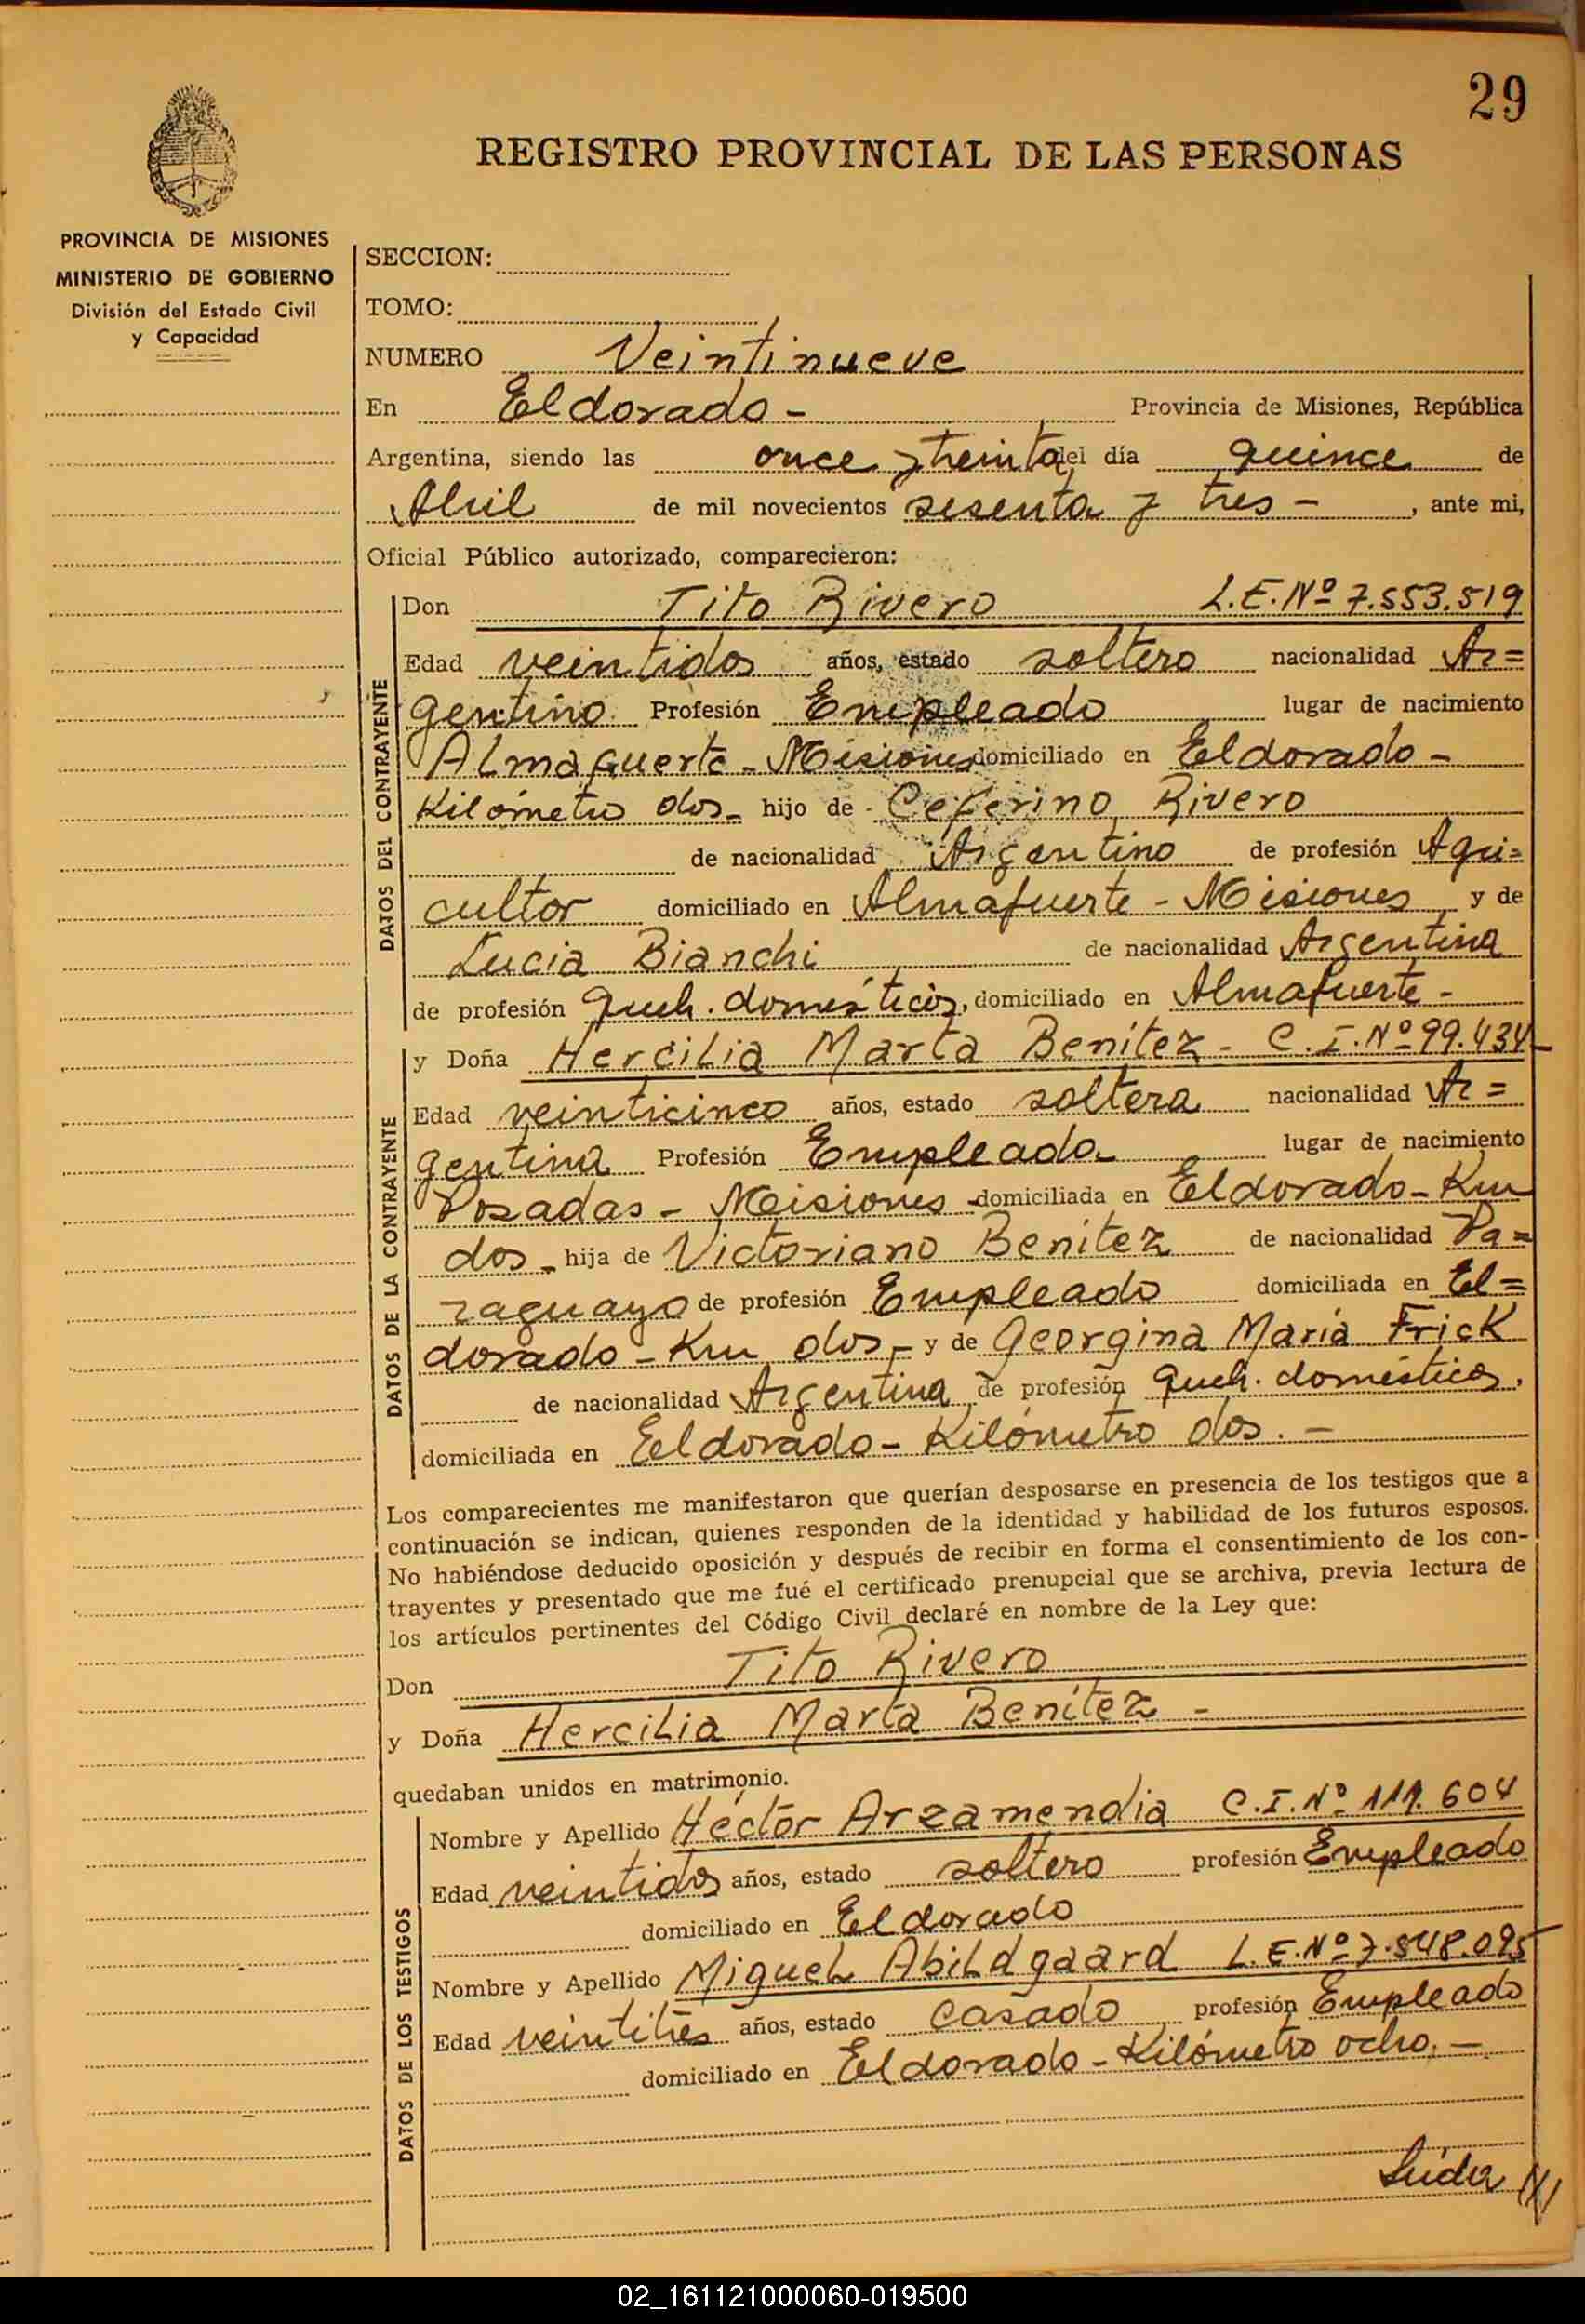 29
REGISTRO PROVINCIAL DE LAS PERSONAS
PROVINCIA DE MISIONES
MINISTERIO DE GOBIERNO
División del Estado Civil
y Capacidad
SECCION:
TOMO:
NUMERO Veintinueve
En Eldorado - Provincia de Misiones, República
Argentina, siendo las once y treinta del día quince de
Abril de mil novecientos sesenta y tres - , ante mi,
Oficial Público autorizado, comparecieron:
DATOS DEL CONTRAYENTE
Don Tito Rivero L.E.Nº 7.553.519
Edad veintidos años, estado soltero nacionalidad Ar=
gentino Profesión Empleado lugar de nacimiento
Almafuerte - Misiones domiciliado en Eldorado -
Kilómetro dos - hijo de Ceferino Rivero
de nacionalidad Argentino de profesión Agri=
cultor domiciliado en Almafuerte - Misiones y de
Lucia Bianchi de nacionalidad Argentina
de profesión Queh. domésticos, domiciliado en Almafuerte -
DATOS DE LA CONTRAYENTE
y Doña Hercilia Marta Benítez - C.I.Nº 99.434
Edad veinticinco años, estado soltera nacionalidad Ar=
gentina Profesión Empleada lugar de nacimiento
Posadas - Misiones domiciliada en Eldorado - Km
dos - hija de Victoriano Benítez de nacionalidad Pa=
raguayo de profesión Empleado domiciliada en El=
dorado - Km dos - y de Georgina María Frick
de nacionalidad Argentina de profesión Queh. domésticos,
domiciliada en Eldorado - Kilómetro dos. -
Los comparecientes me manifestaron que querían desposarse en presencia de los testigos que a
continuación se indican, quienes responden de la identidad y habilidad de los futuros esposos.
No habiéndose deducido oposición y después de recibir en forma el consentimiento de los con-
trayentes y presentado que me fué el certificado prenupcial que se archiva, previa lectura de
los artículos pertinentes del Código Civil declaré en nombre de la Ley que:
Don Tito Rivero
y Doña Hercilia Marta Benítez -
quedaban unidos en matrimonio.
DATOS DE LOS TESTIGOS
Nombre y Apellido Héctor Arzamendia C.I.Nº 111.604
Edad veintidos años, estado soltero profesión Empleado
domiciliado en Eldorado
Nombre y Apellido Miguel Abildgaard L.E.Nº 7.548.095
Edad veintitres años, estado casado profesión Empleado
domiciliado en Eldorado - Kilómetro ocho. -
Leida ///
02_161121000060-019500